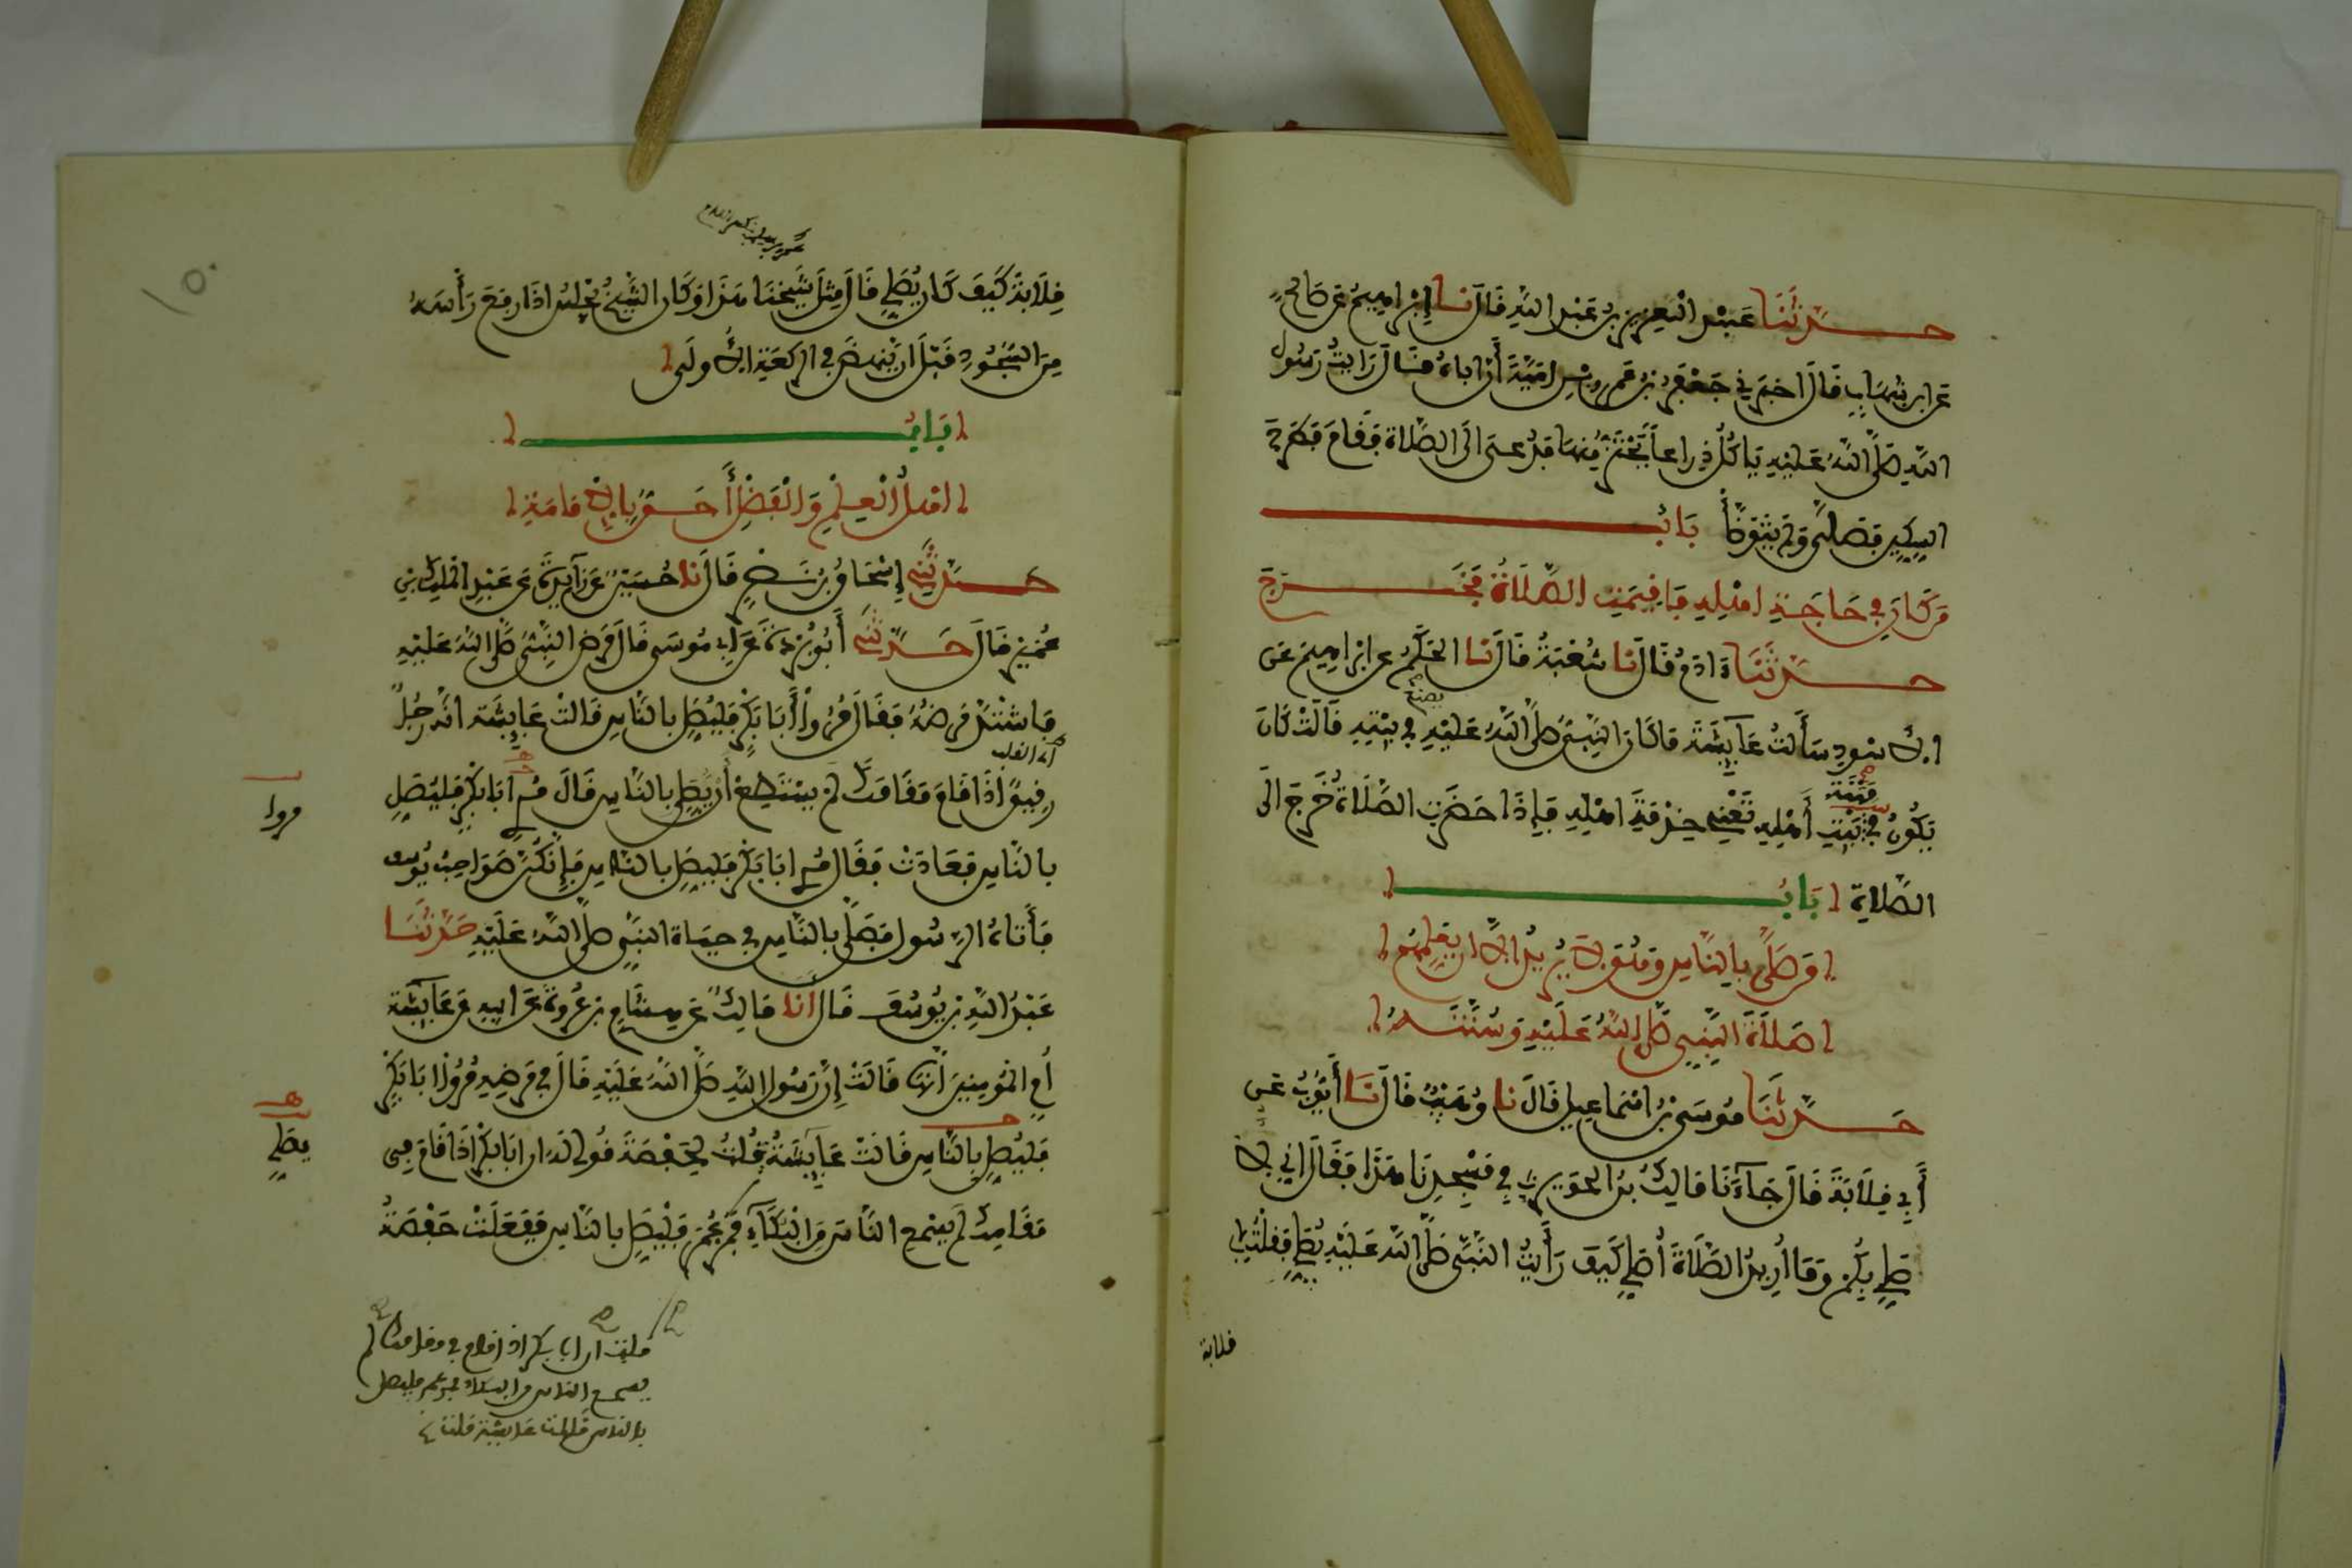 حدثنا عبد العزيز بن عبد الله قال نا إبراهيم عن صالح
عن ابن شهاب قال اخبرني جعفر بن عمرو بن امية أن اباه قال رايت رسول
الله صلى الله عليه ياكل ذراعا يحتز منها فدعى الى الصلاة فقام فطرح
السكين فصلى ولم يتوضأ باب
من كان في حاجة اهله فأقيمت الصلاة فخرج
حدثنا ءادم قال نا شعبة قال نا الحكم عن ابراهيم عن
الاسود سألت عايشة ما كان النبي صلى الله عليه يصنع في بيته قالت كان
يكون في مهنة بيت أهله تعني خدمة اهله فإذا حضرت الصلاة خرج الى
الصلاة باب
من صلى بالناس وهو لا يريد الا ان يعلمهم
صلاة النبي صلى الله عليه وسنته
حدثنا موسى بن اسماعيل قال نا وهيب قال نا أيوب عن
أبي قلابة قال جآءنا مالك بن الحويرث في مسجدنا هذا فقال اني لا
صلي بكم وما اريد الصلاة أصلي كيف رأيت النبي صلى الله عليه يصلي فقلت لابي
قلابة
قلابة كيف كان يصلي قال مثل شيخنا هذا وكان الشيخ يجلس اذا رفع رأسه
من السجود قبل ان ينهض في الركعة الاولى
باب
اهل العلم والفضل أحق بالامامة
حدثني إسحاق بن نصر قال نا حسين عن زايدة عن عبد الملك بن
عمير قال حدثني أبو بردة عن ابي موسى قال مرض النبي صلى الله عليه
فاشتد مرضه فقال مروا أبا بكر فليصل بالناس قالت عايشة انه رجل
اي القلب
رقيق اذا قام مقامك لم يستطع أن يصلي بالناس قال مري ابا بكر فليصل
مروا
بالناس فعادت فقال مري ابا بكر فليصل بالناس فإنكن صواحب يوسف
فأتاه الرسول فصلى بالناس في حياة النبي صلى الله عليه حدثنا
عبد الله بن يوسف قال أنا مالك عن هشام بن عروة عن ابيه عن عايشة
أم المومنين أنها قالت إن رسول الله صلى الله عليه قال في مرضه مروا ابا بكر
فليصل بالناس قالت عايشة قلت لحفصة قولي له ان ابا بكر اذا قام في
يصلي
مقامك لم يسمع الناس من البكاء فمر عمر فليصل بالناس ففعلت حفصة
قلت ان ابا بكر اذا قام في مقامك لم
يسمع الناس من البكاء فمر عمر فليصل
بالناس قالت عايشة قلت